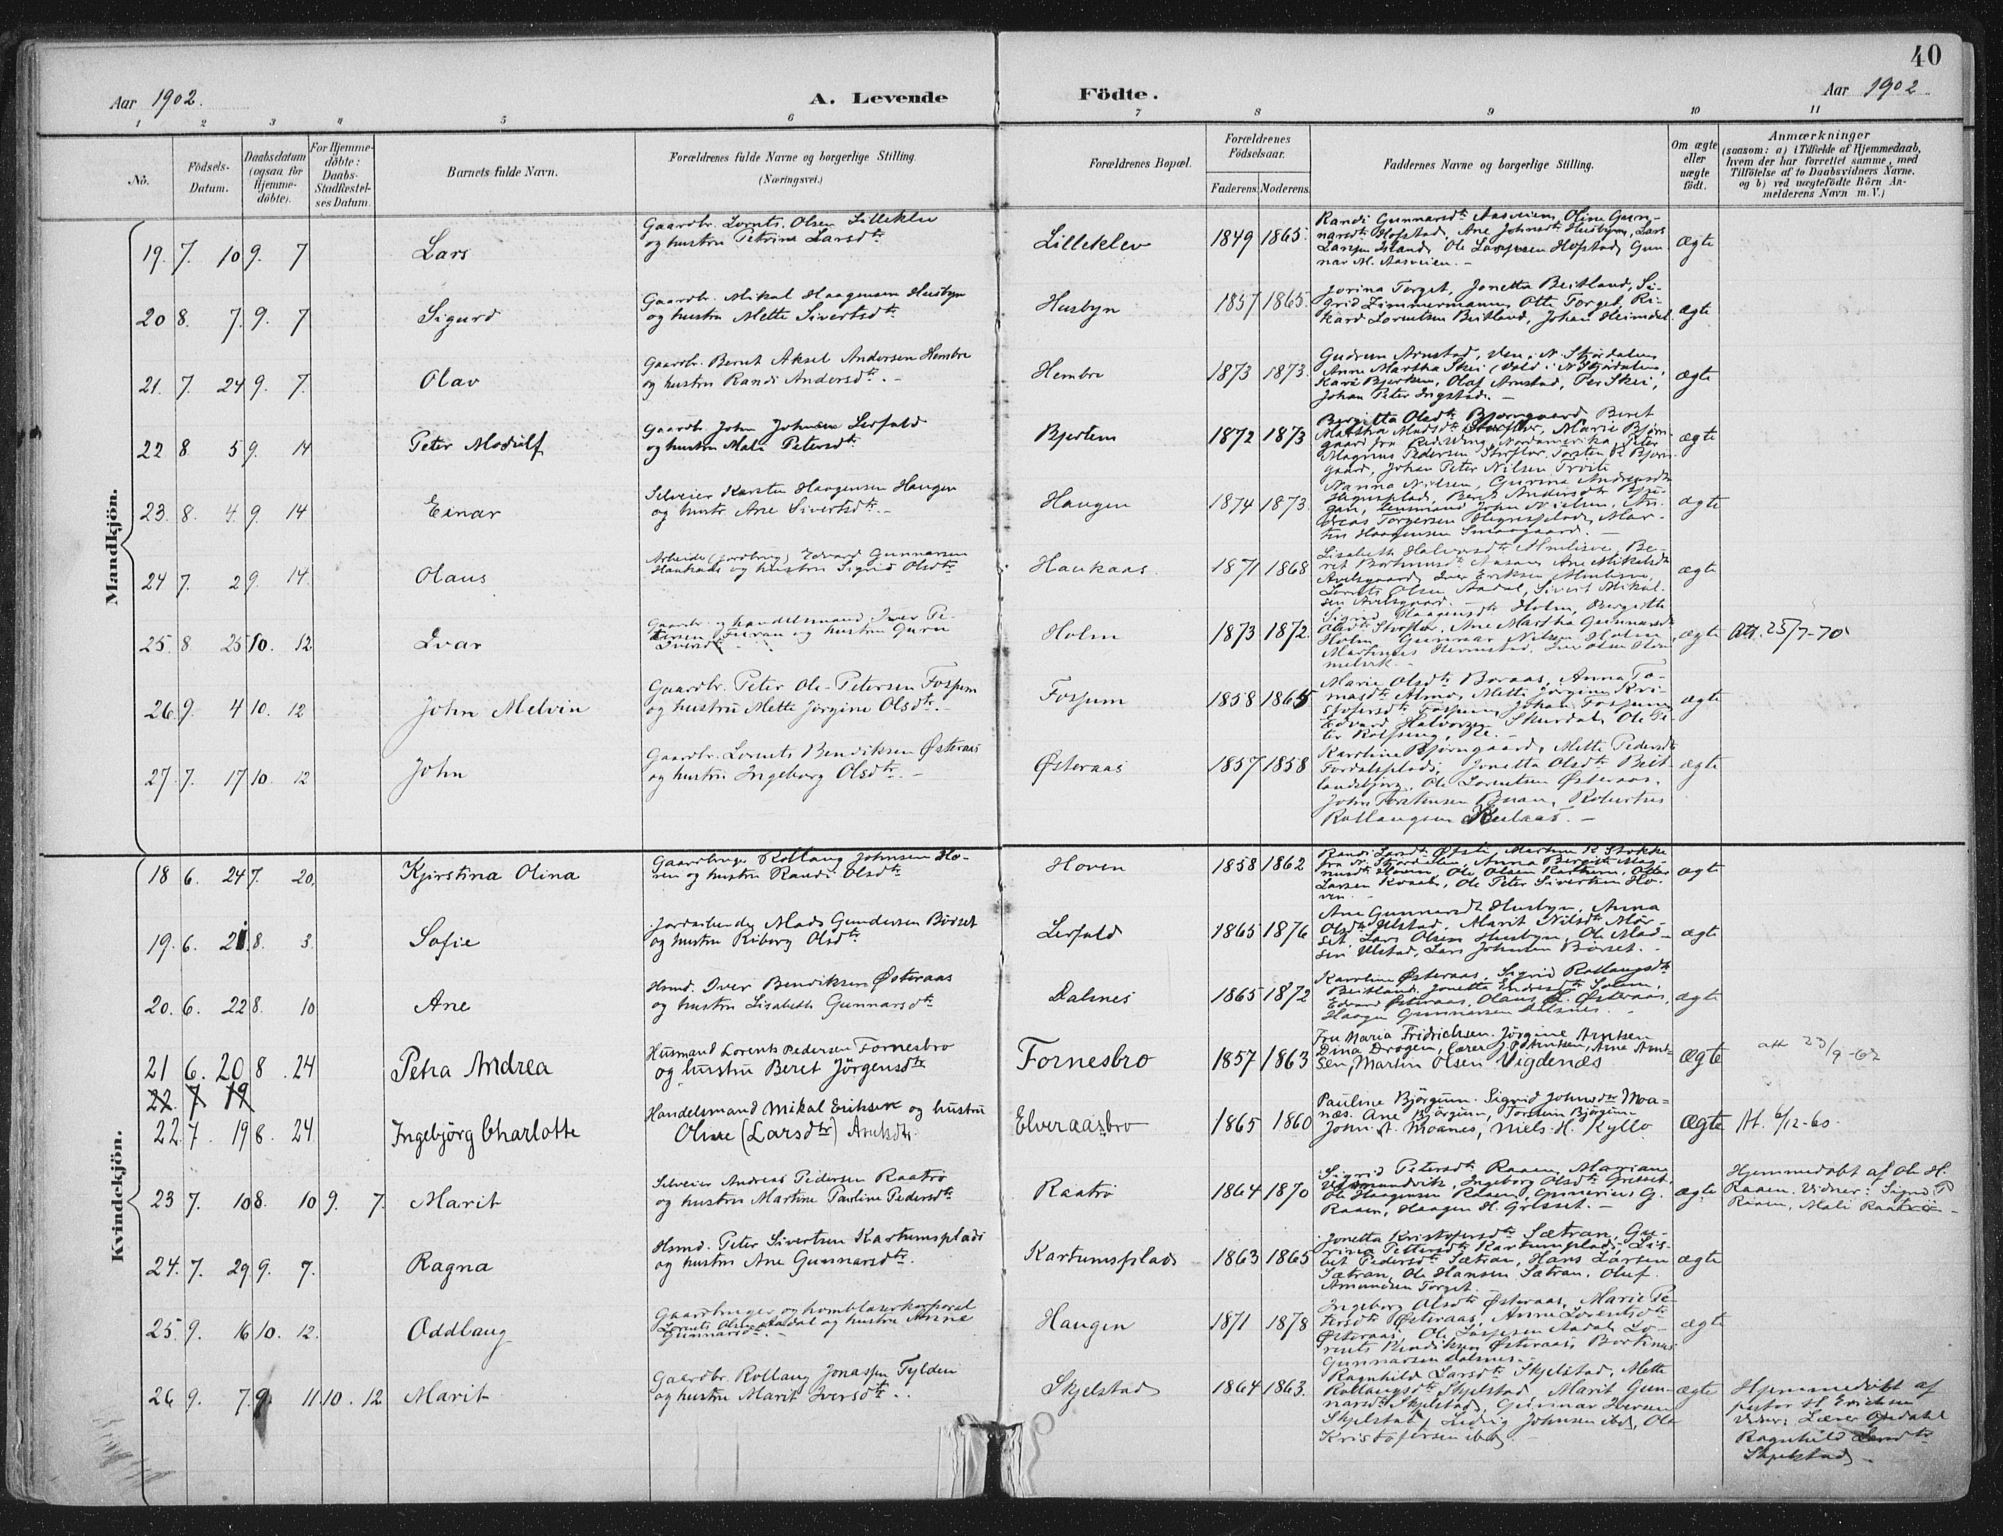 40
Aar 1902.
A. Levende
Födte.
Aar 1902.
1 2 3 4 5 6 7 8 9 10 11
No.
Födsels-
Datum.
Daabsdatum
(ogsaa for
Hjemme-
döbte).
For Hjemme-
döbte:
Daabs-
Stadfæstel-
ses Datum.
Barnets fulde Navn.
Forældrenes fulde Navne og borgerlige Stilling.
(Næringsvei.)
Forældrenes Bopæl.
Forældrenes
Födselsaar.
Faderens. Moderens.
Faddernes Navne og borgerlige Stilling.
Om ægte
eller
uægte
födt.
Anmærkninger
(saasom: a) i Tilfælde af Hjemmedaab,
hvem der har forrettet samme, med
Tilföielse af to Daabsvidners Navne,
og b) ved uægtefödte Börn An-
melderens Navn m. V.)
Mandkjön.
19. 7. 10 9. 7 Lars
Gaardbr. Lornts Olsen Lilleklev
og hustru Petrina Larsdtr
Lilleklev 1849 1865.
Randi Gunnarsdtr Aasveien, Oline Gun-
narsdtr Hofstad, Ane Johnsdtr Husbyn, Lars
Larssen Island, Ole Larssen Hofstad, Gun-
nar M. Aasveien. -
ægte
20 8. 7. 9. 7 Sigurd
Gaardbr. Mikal Haagensen Husbyn
og hustru Mette Sivertsdtr
Husbyn 1857 1865.
Jorina Torget, Jonetta Beitland, Si-
grid Zimmermann, Otte Torget, Ri-
kard Lorentsen Beitland, Johan Heimdal
ægte
21. 7. 24 9. 7. Olav
Gaardbr. Bernt Aksel Andersen Hembre
og hustru Randi Andersdtr. -
Hembre 1873 1873.
Gudrun Arnstad, Ven, N. Stjördalen,
Anne Martha Skei (Vold i N. Stjördalen,
Kari Bjerken, Olaf Arnstad, Per Skei,
Johan Peter Ingstad. -
ægte
22 8 5 9. 14 Peter Modulf
Gaardb. John Johnsen Leifald
og hustru Mali Petersdtr
Bjertem 1872 1873
Bergitta Olsdtr Bjørngaard, Beret
Martha Madsdtr Storflor, Marie Bjørn-
gaard fra Red Wing, Nordamerika, Peter
Magnus Pedersen Storflor, Torsten R. Bjørn-
gaard, Johan Peter Nilsen Troite
ægte
23. 8. 4. 9. 14 Einar
Selveier Karsten Haagensen Haugen
og hustr. Ane Sivertsdtr. -
Haugen 1874 1873.
Nanna Nielsen, Gurina Andreasdtr
ægte
24 7. 2 9. 14. Olaus
Arbeider (Jordbrug) Edvard Gunnarsen
Haukaas og hustru Sigrid Olsdtr
Haukaas. 1871 1868
ægte
25. 8 25 10. 12 Ivar
Gaardbr. og handelsmand Iver Pe-
tersen Furan og hustru Guru
Iversdtr
Holm 1873 1872.
Olsdtr Storflor, Ane Martha Gunnarsdtr
Holm, Gunnar Nilsen Holm,
ægte Att. 25/7-70
26. 9. 4 10. 12 John Melvin
Gaardbr. Peter Ole Petersen Fossum
og hustru Mette Jørgine Olsdtr. -
Fossum 1858 1865
Marie Olsdtr Boraas, Anna To-
masdtr Almo, Mette Jørgine Kri-
stofersdtr Fossum, Johan Fossum,
Edvard Halvorsen Skurdal, Ole Pe-
ægte
27. 7. 17 10. 12 John
Gaardbr. Lornts Bendiksen Østeraas
og hustru Ingeborg Olsdtr. -
Østeraas 1857 1858
Karoline Bjørngaard, Mette Pedersdtr
Fordalsplads, Jonetta Olsdtr Beit-
landsbjørg, Ole Lorentsen Østeraas,
John Torstensen Buan, Robertus
Rollaugsen Reelaas. -
ægte
Kvindekjön.
18 6. 24 7. 20. Kjirstina Olina
Gaardbruger Rollaug Johnsen Ho-
ven og hustru Randi Olsdtr
Hoven 1858 1862
Randi Larsdtr Øfsti, Martin K. Stokke
fra N. Stjördalen, Anna Bergitte Mag-
nusdtr Hoven, Ole Olsen Kartum, Otter
Larsen Kvaal, Ole Peter Sivertsen Ho-
ven. -
ægte
19. 6. 21 8. 3. Sofie
Jordarbeider Mads Gundersen Börset
og hustru Riborg Olsdtr
Leifald 1865 1876
Ane Gunnarsdtr Husbyn, Anna
Olsdtr Ulstad, Marit Nilsdtr Mör-
set, Lars Olsen Husbyn, Ole Mad-
sen Ulstad, Lars Johnsen Börset. -
ægte
20. 6. 22 8. 10 Ane
Hsmd. Iver Bendriksen Østeraas
og hustru Lisabeth Gunnarsdtr
Dalsnes 1865 1872
Karoline Østeraas, Sigrid Rollaugsdtr
Beitland, Jonetta Endresdtr Soem,
Edvard Østeraas, Olaus E. Østeraas,
Haagen Gunnarsen Dalsnes. -
ægte
21 6. 20 8 . 24 Petra Andrea
Husmand Lorents Pedersen Fornesbro
og hustru Beret Jörgensdtr
Fornesbro 1857 1863
Fru Maria Fridrichsen. Jörgine Arntsen
Dina Drogen, Lærer J. Arntsen, Arne Arnt-
sen, Martin Olsen Vigdenæs
ægte att 23/9-62
22. 7 19
22. 7. 19 8. 24. Ingebjörg Charlotte
Handelsmand Mikal Eriksen og hustru
Oline (Larsdtr) Arntsdtr
Elveraasbro 1865 1860
Pauline Björgum. Sigrid Johnsdtr Moa-
næs. Ane Björgum, Torstein Björgum
John A. Moanes, Niels H. Kyllo
ægte At. 6/12-60.
23 7. 10 8. 10 9. 7. Marit
Selveier Andreas Pedersen Raatrø
og hustru Martine Pauline Pedersdtr
Raatrø 1864 1870
Sigrid Petersdtr Raaen, Mariane
Vikmandvik, Ingeborg Olsdtr Gresset,
Ole Haagensen Raaen, Gunerius G.
Raaen, Haagen H. Gresset. -
ægte
Hjemmedöbt af Ole H.
Raaen, Vidner: Sigrid P
Raaen, Mali Raatrö -
24. 7. 29 9. 7. Ragna
Hsmd. Peter Sivertsen Kartumsplads
og hustru Ane Gunnarsdtr.
Kartumsplads 1863 1865
Jonetta Kristofersdtr Sætran, Gu-
rina Pettersdtr Kartumplads, Lis-
bet Pedersdtr Sætran, Hans Larsen
Sætran, Ole Hansen Sætran, Oluf
Amundsen Torget.
ægte
25. 9. 16 10. 12. Oddlaug
Gaardbruger og hornblæserkorporal
Lornts Olsen Aadal og hustru Anne
Gunnarsdtr. -
Haugen 1871 1878
Ingeborg Olsdtr Østeraas, Marie Pe-
tersdtr Østeraas, Anne Lorentsdtr
Østeraas, Ole Larssen Aadal, Lo-
rents Bendiksen Østeraas, Bortinus
Gunnarsen Dalsnes. -
ægte
26 9. 7. 9. 11 10. 12 Marit
Gaardbr. Rollaug Jonassen Fylden
og hustru Marit Iversdtr. -
Skjelstad 1864 1863.
Ragnhild Larsdtr Skjelstad, Mette
Rollaugsdtr Skjelstad, Marit Gun-
narsdtr Skjelstad, Gunnar Iversen
Skjelstad, Ludvig Johnsen ibd, Ole
Kristofersen ibd. -
ægte
Hjemmedöbt af
pastor H. Erichsen
Vidner: Lærer Opdahl
Ragnhild Larsdtr
Skjelstad. -